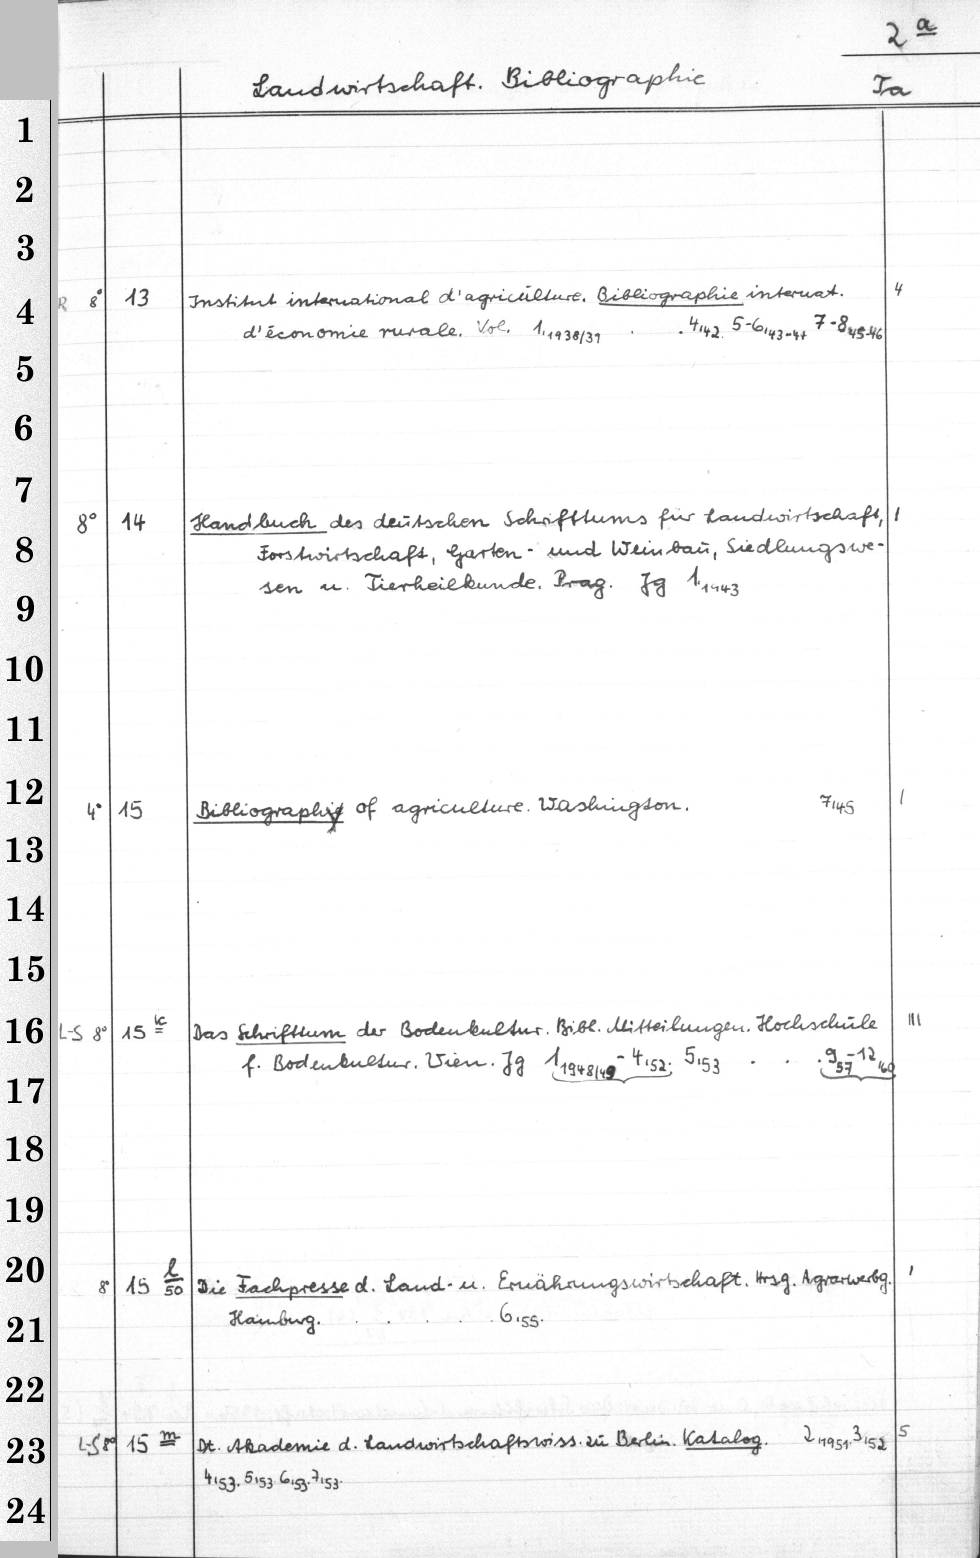 2 a
Landwirtschaft. Bibliographie Ta
1
2
3
4 R 8° 13 Institut international d'agriculture. Bibliographie internat. 4
d'économie rurale. Vol. 1,1938/39 . . 4,42. 5-6,43-44 7-8,45-46
5
6
7
8° 14 Handbuch des deutschen Schrifttums für Landwirtschaft, 1
8 Forstwirtschaft, Garten- und Weinbau, Siedlungswe-
9 sen u. Tierheilkunde. Prag. Jg 1,1943
10
11
12 4° 15 Bibliography of agriculture. Washington. 7,45 1
13
14
15
16 L-S 8° 15 k Das Schrifttum der Bodenkultur. Bibl. Mitteilungen. Hochschule III
f. Bodenkultur. Wien. Jg 1,1948/49-4,52; 5,53 . . . 9,57-12,60
17
18
19
20 8° 15 l/50 Die Fachpresse d. Land- u. Ernährungswirtschaft. Hrsg. Agrarwerbg. 1
21 Hamburg. . . . . . 6,55.
22
23 L-S 8° 15 m Dt. Akademie d. Landwirtschaftswiss. zu Berlin. Katalog. 2,1951. 3,52 5
4,53. 5,53. 6,53. 7,53.
24